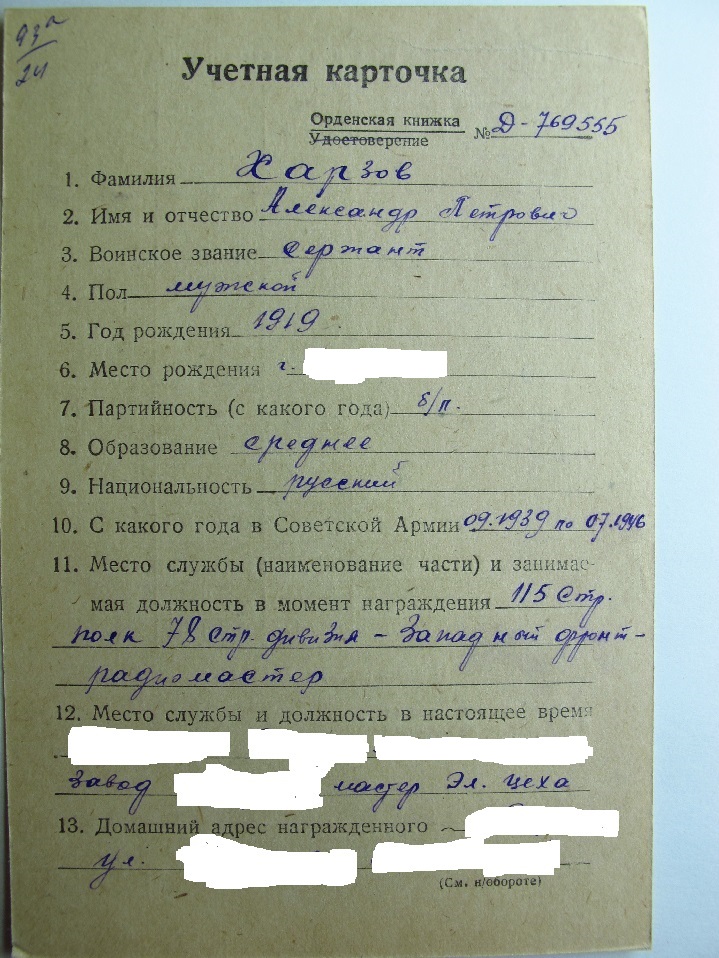 93а
24
Учетная карточка
Орденская книжка
Удостоверение
№ Д-769555
1. Фамилия Харзов
2. Имя и отчество Александр Петрович
3. Воинское звание сержант
4. Пол мужской
5. Год рождения 1919
6. Место рождения г.
7. Партийность (с какого года) б/п.
8. Образование среднее
9. Национальность русский
10. С какого года в Советской Армии 09.1939 по 07.1946
11. Место службы (наименование части) и занимае-
мая должность в момент награждения 115 стр.
полк 78 стр. дивизия - Западный фронт -
радиомастер
12. Место службы и должность в настоящее время
завод мастер Эл. цеха
13. Домашний адрес награжденного
ул.
(См. н/обороте)